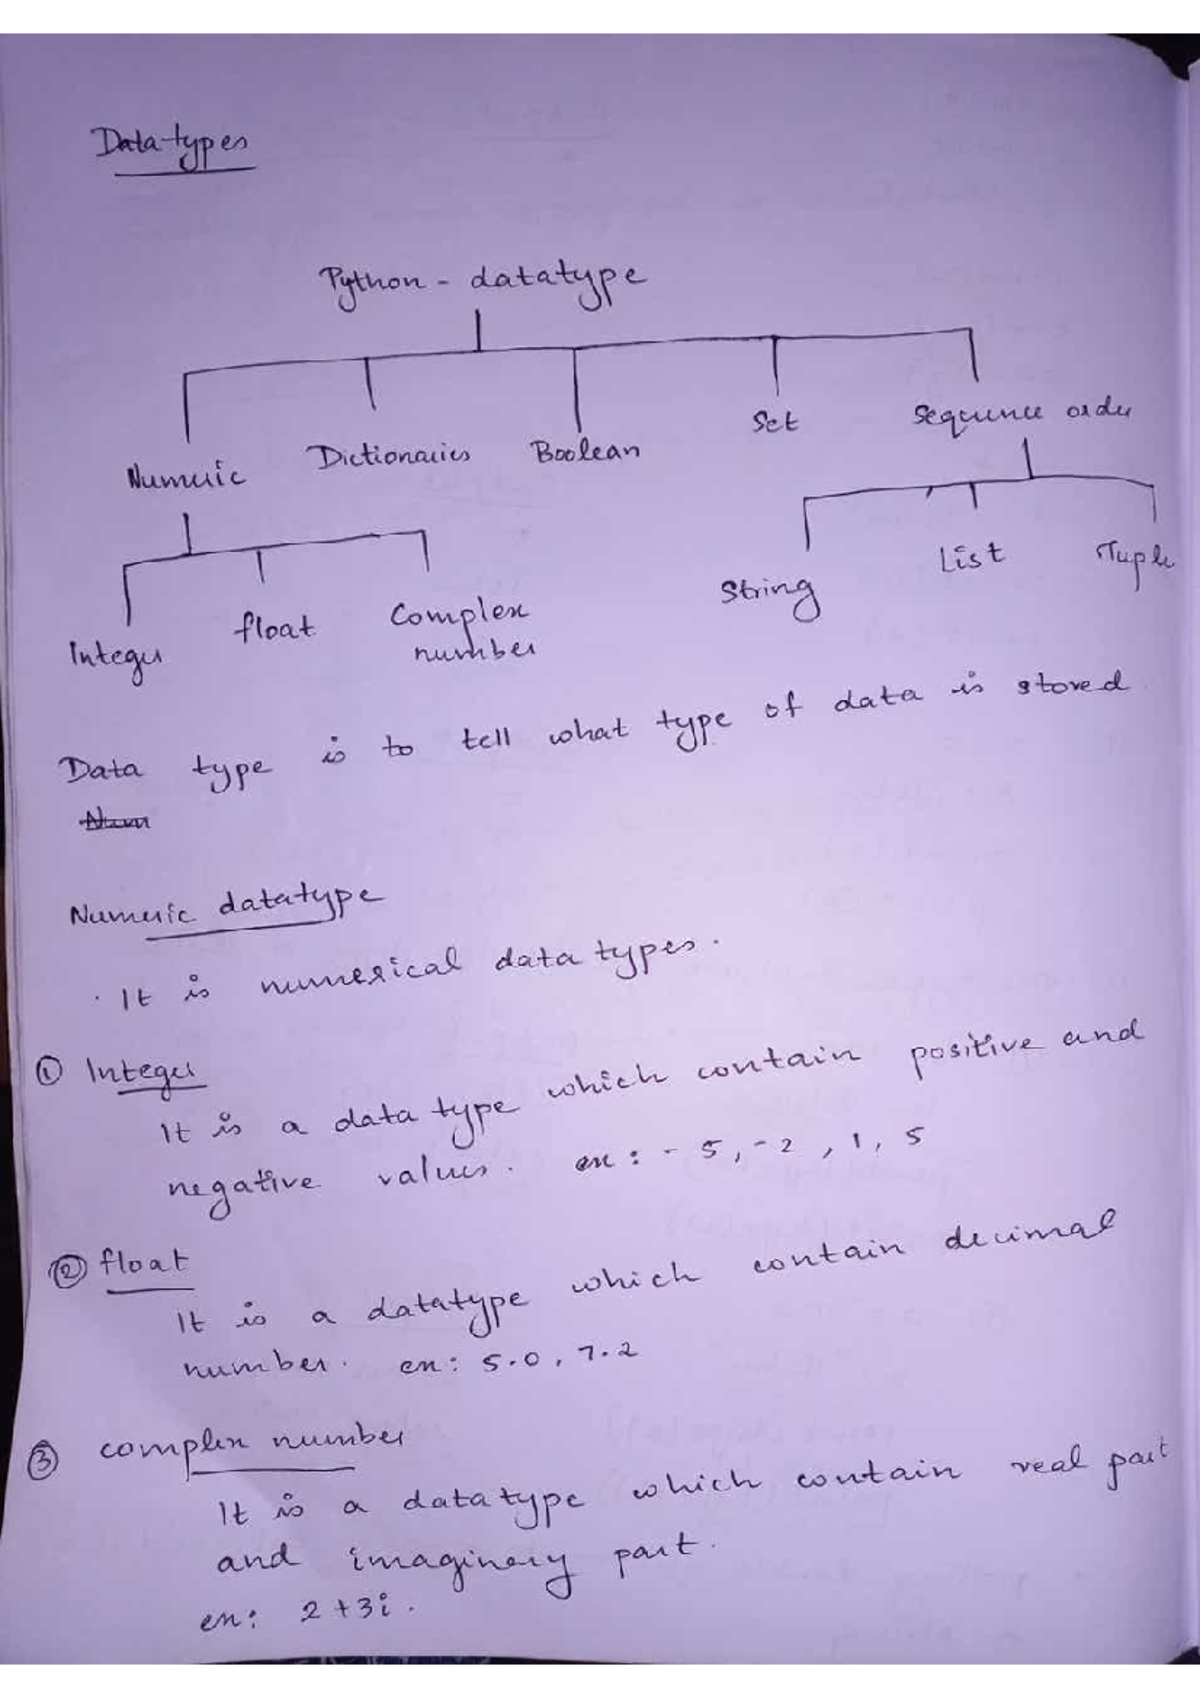 Data types
Python - datatype
Numeric Dictionaries Boolean Set Sequence order
Integer float Complex number String List Tuple
Data type is to tell what type of data is stored
Num
Numeric datatype
. It is numerical data types.
① Integer
It is a data type which contain positive and
negative values. ex : - 5, - 2 , 1, 5
② float
It is a datatype which contain decimal
number. ex: 5.0, 7.2
③ complex number
It is a data type which contain real part
and imaginery part.
ex: 2+3i.